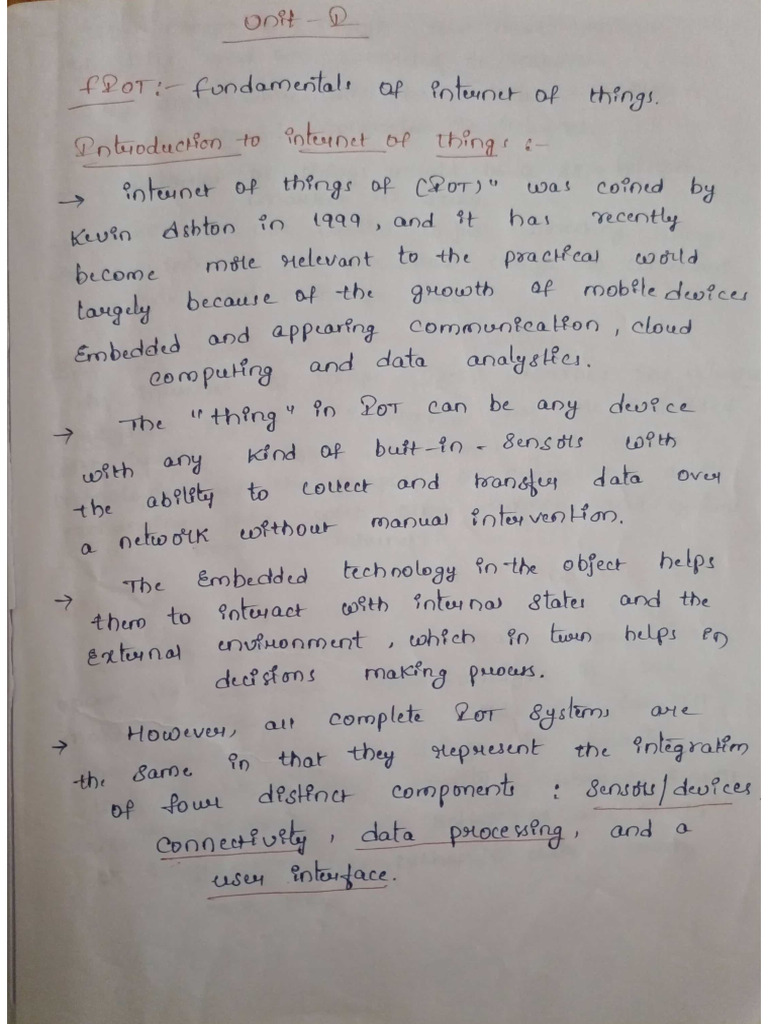 Unit - I
FIOT:- Fundamentals of internet of things.
Introduction to internet of things :-
→ internet of things of (IOT)" was coined by
Kevin Ashton in 1999, and it has recently
become more relevant to the practical world
largely because of the growth of mobile devices
Embedded and appearing communication, cloud
computing and data analystics.
→ The "thing" in IOT can be any device
with any kind of buit-in - sensors with
the ability to collect and transfer data over
a network without manual intervention.
→ The Embedded technology in the object helps
them to interact with internal states and the
External environment, which in turn helps in
decisions making process.
→ However, all complete IOT systems are
the same in that they represent the integration
of four distinct components : sensors/devices
connectivity, data processing, and a
user interface.